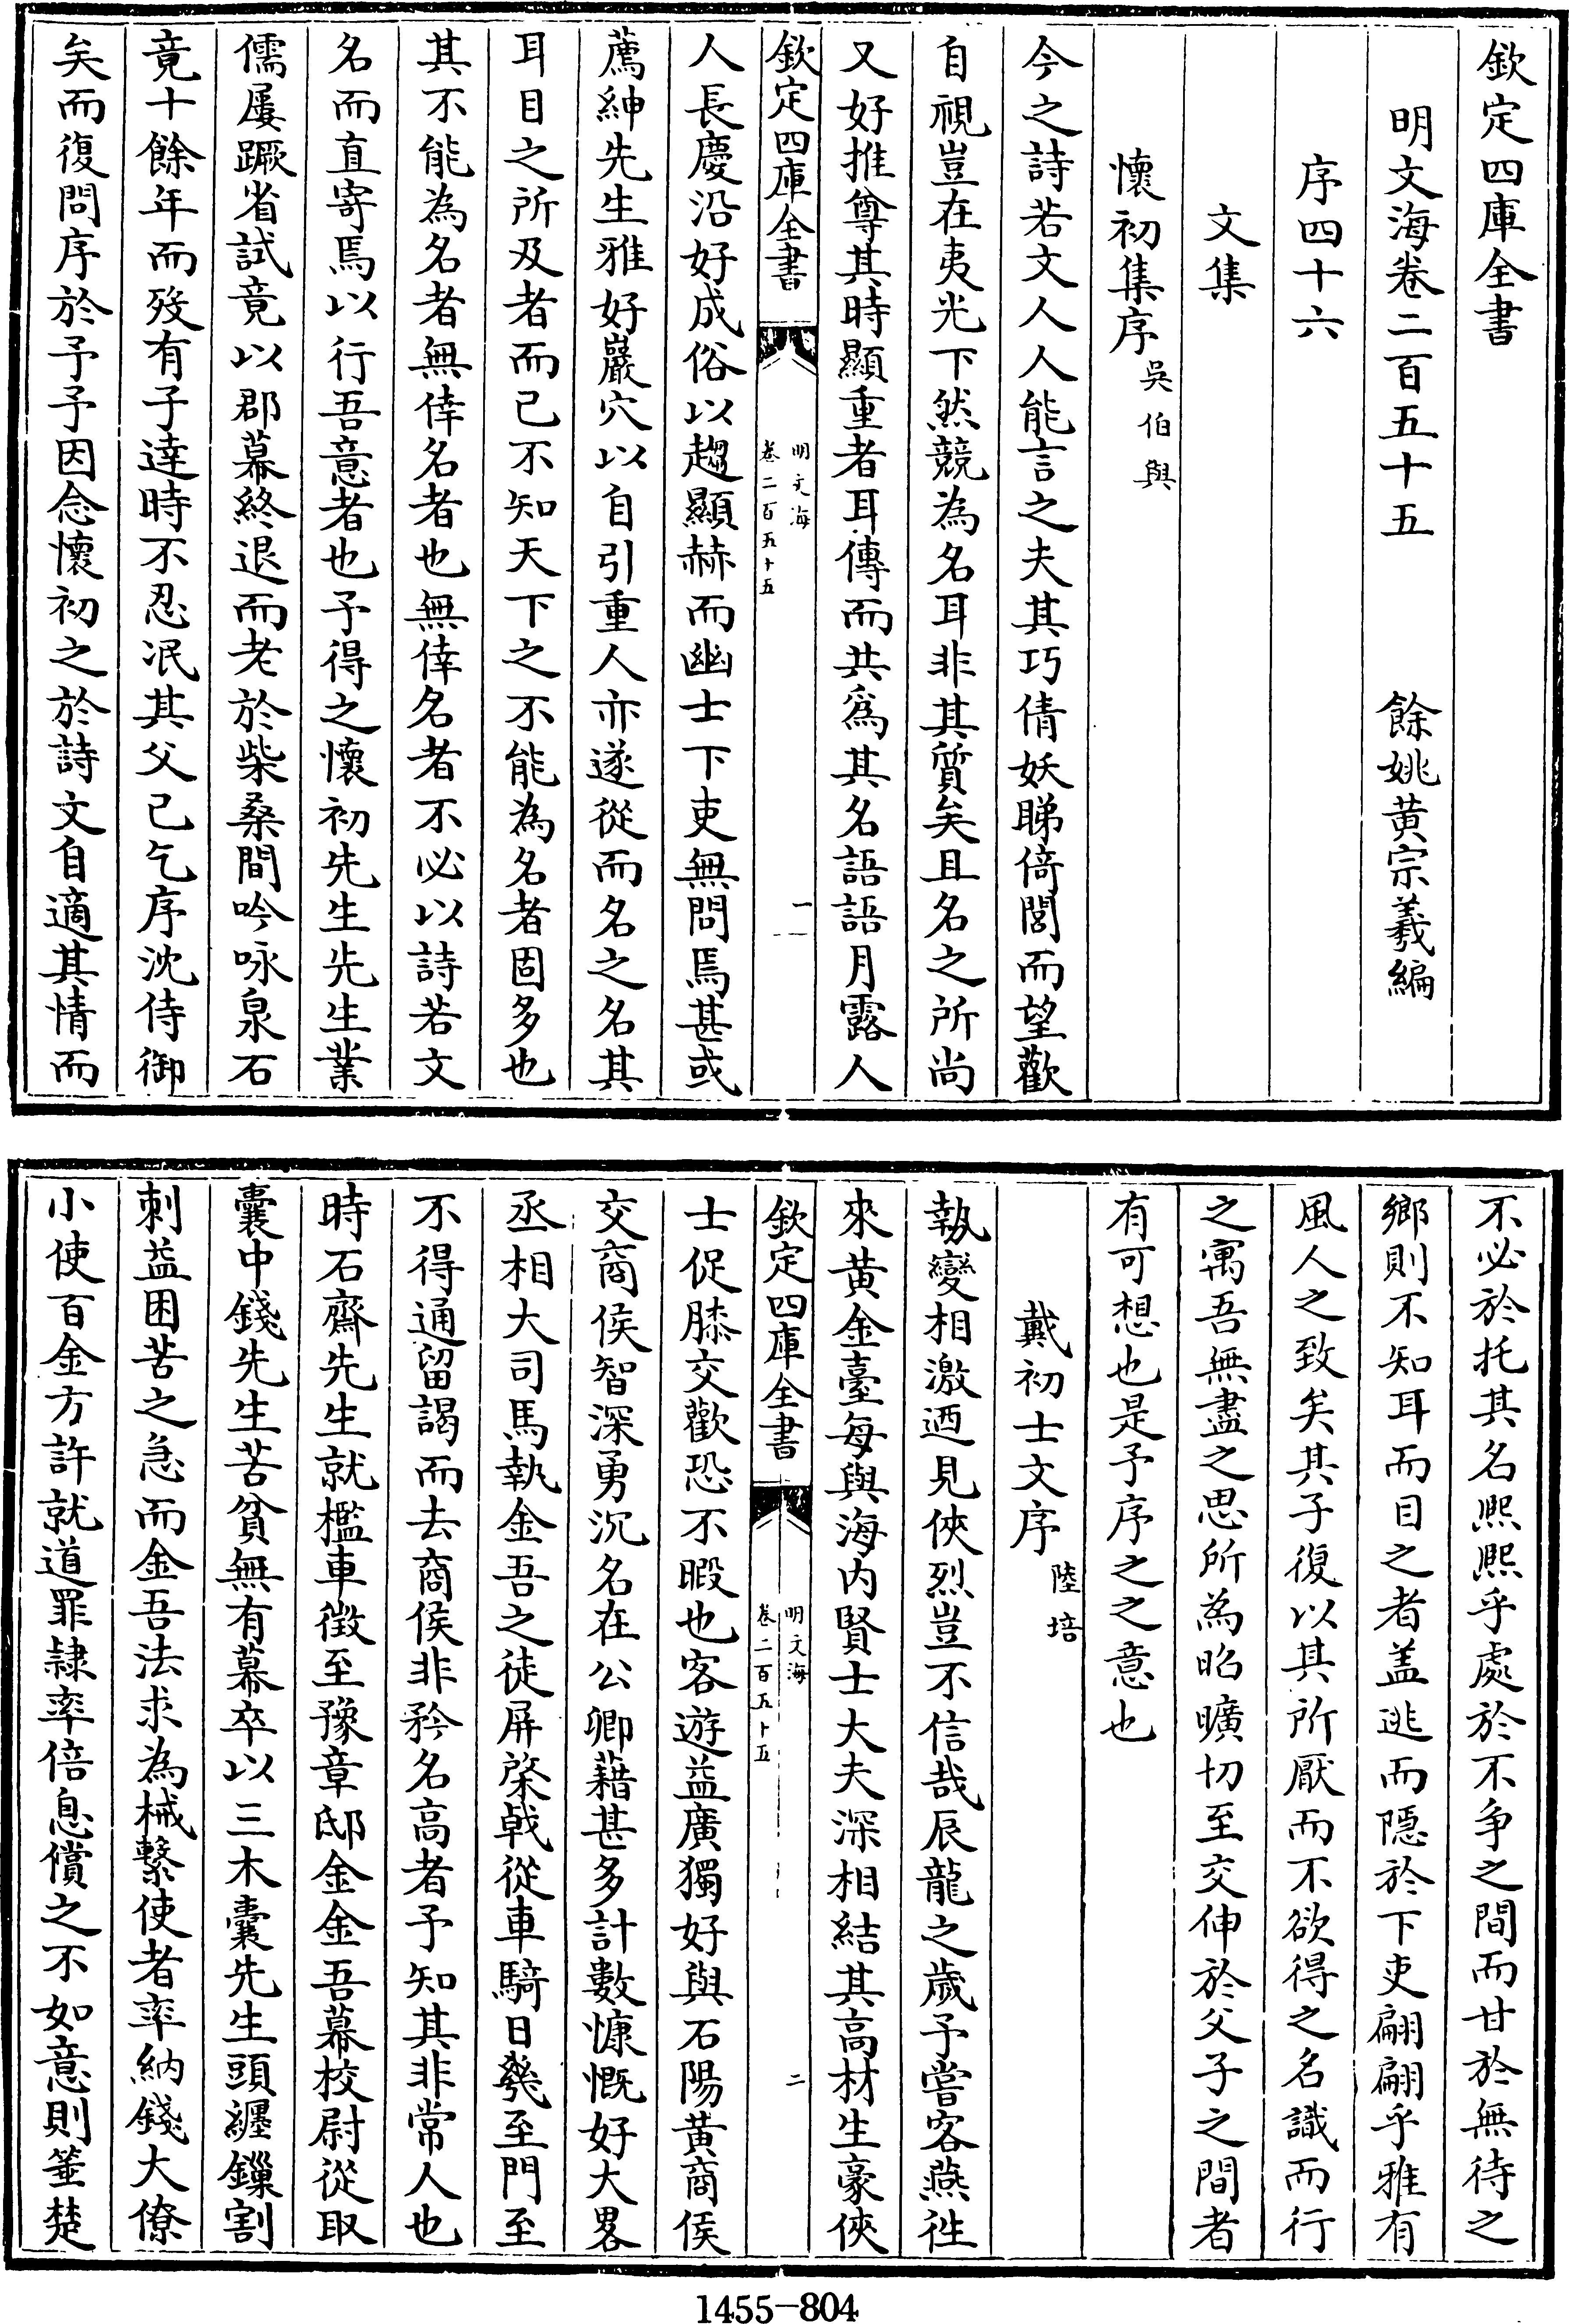 欽定四庫全書
明文海卷二百五十五　餘姚黄宗羲編
序四十六
文集
懷初集序吳伯與
今之詩若文人人能言之夫其巧倩妖睇倚閭而望歡
自視豈在夷光下然競為名耳非其質矣且名之所尚
又好推尊其時顯重者耳傳而共爲其名語語月露人
欽定四庫全書
明文海
卷二百五十五
一
人長慶沿好成俗以趨顯赫而幽士下吏無問焉甚或
薦紳先生雅好巖穴以自引重人亦遂從而名之名其
耳目之所及者而已不知天下之不能為名者固多也
其不能為名者無倖名者也無倖名者不必以詩若文
名而直寄焉以行吾意者也予得之懷初先生先生業
儒屢蹶省試竟以郡幕終退而老於柴桑間吟咏泉石
竟十餘年而歿有子達時不忍泯其父已乞序沈侍御
矣而復問序於予予因念懷初之於詩文自適其情而
不必於托其名熙熙乎處於不争之間而甘於無待之
鄉則不知耳而目之者盖逃而隠於下吏翩翩乎雅有
風人之致矣其子復以其所厭而不欲得之名識而行
之寓吾無盡之思所為昭曠切至交伸於父子之間者
有可想也是予序之之意也
戴初士文序陸培
執變相激迺見俠烈豈不信哉辰龍之歲予嘗客燕徃
來黄金臺每與海内賢士大夫深相結其高材生豪俠
欽定四庫全書
明文海
卷二百五十五
二
士促膝交歡恐不暇也客遊益廣獨好與石陽黄商侯
交商侯智深勇沉名在公卿藉甚多計數慷慨好大畧
丞相大司馬執金吾之徒屏棨戟從車騎日發至門至
不得通留謁而去商侯非矜名高者予知其非常人也
時石齋先生就檻車徴至豫章邸金金吾幕校尉從取
囊中錢先生苦貧無有幕卒以三木囊先生頭纒鏁割
刺益困苦之急而金吾法求為械繫使者率納錢大僚
小使百金方許就道罪隷率倍息償之不如意則箠楚
1455-804